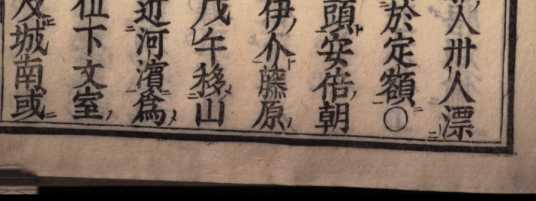 人卅人漂
於定額〇
頭安倍朝
伊介藤原
戊午移山
近河濱爲
位下文室
及城南或